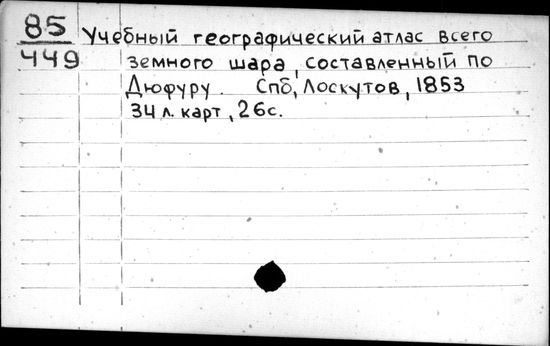 85
449
Учебный географический атлас всего
земного шара, составленный по
Дюфуру. Спб, Лоскутов, 1853
34 л. карт, 26с.